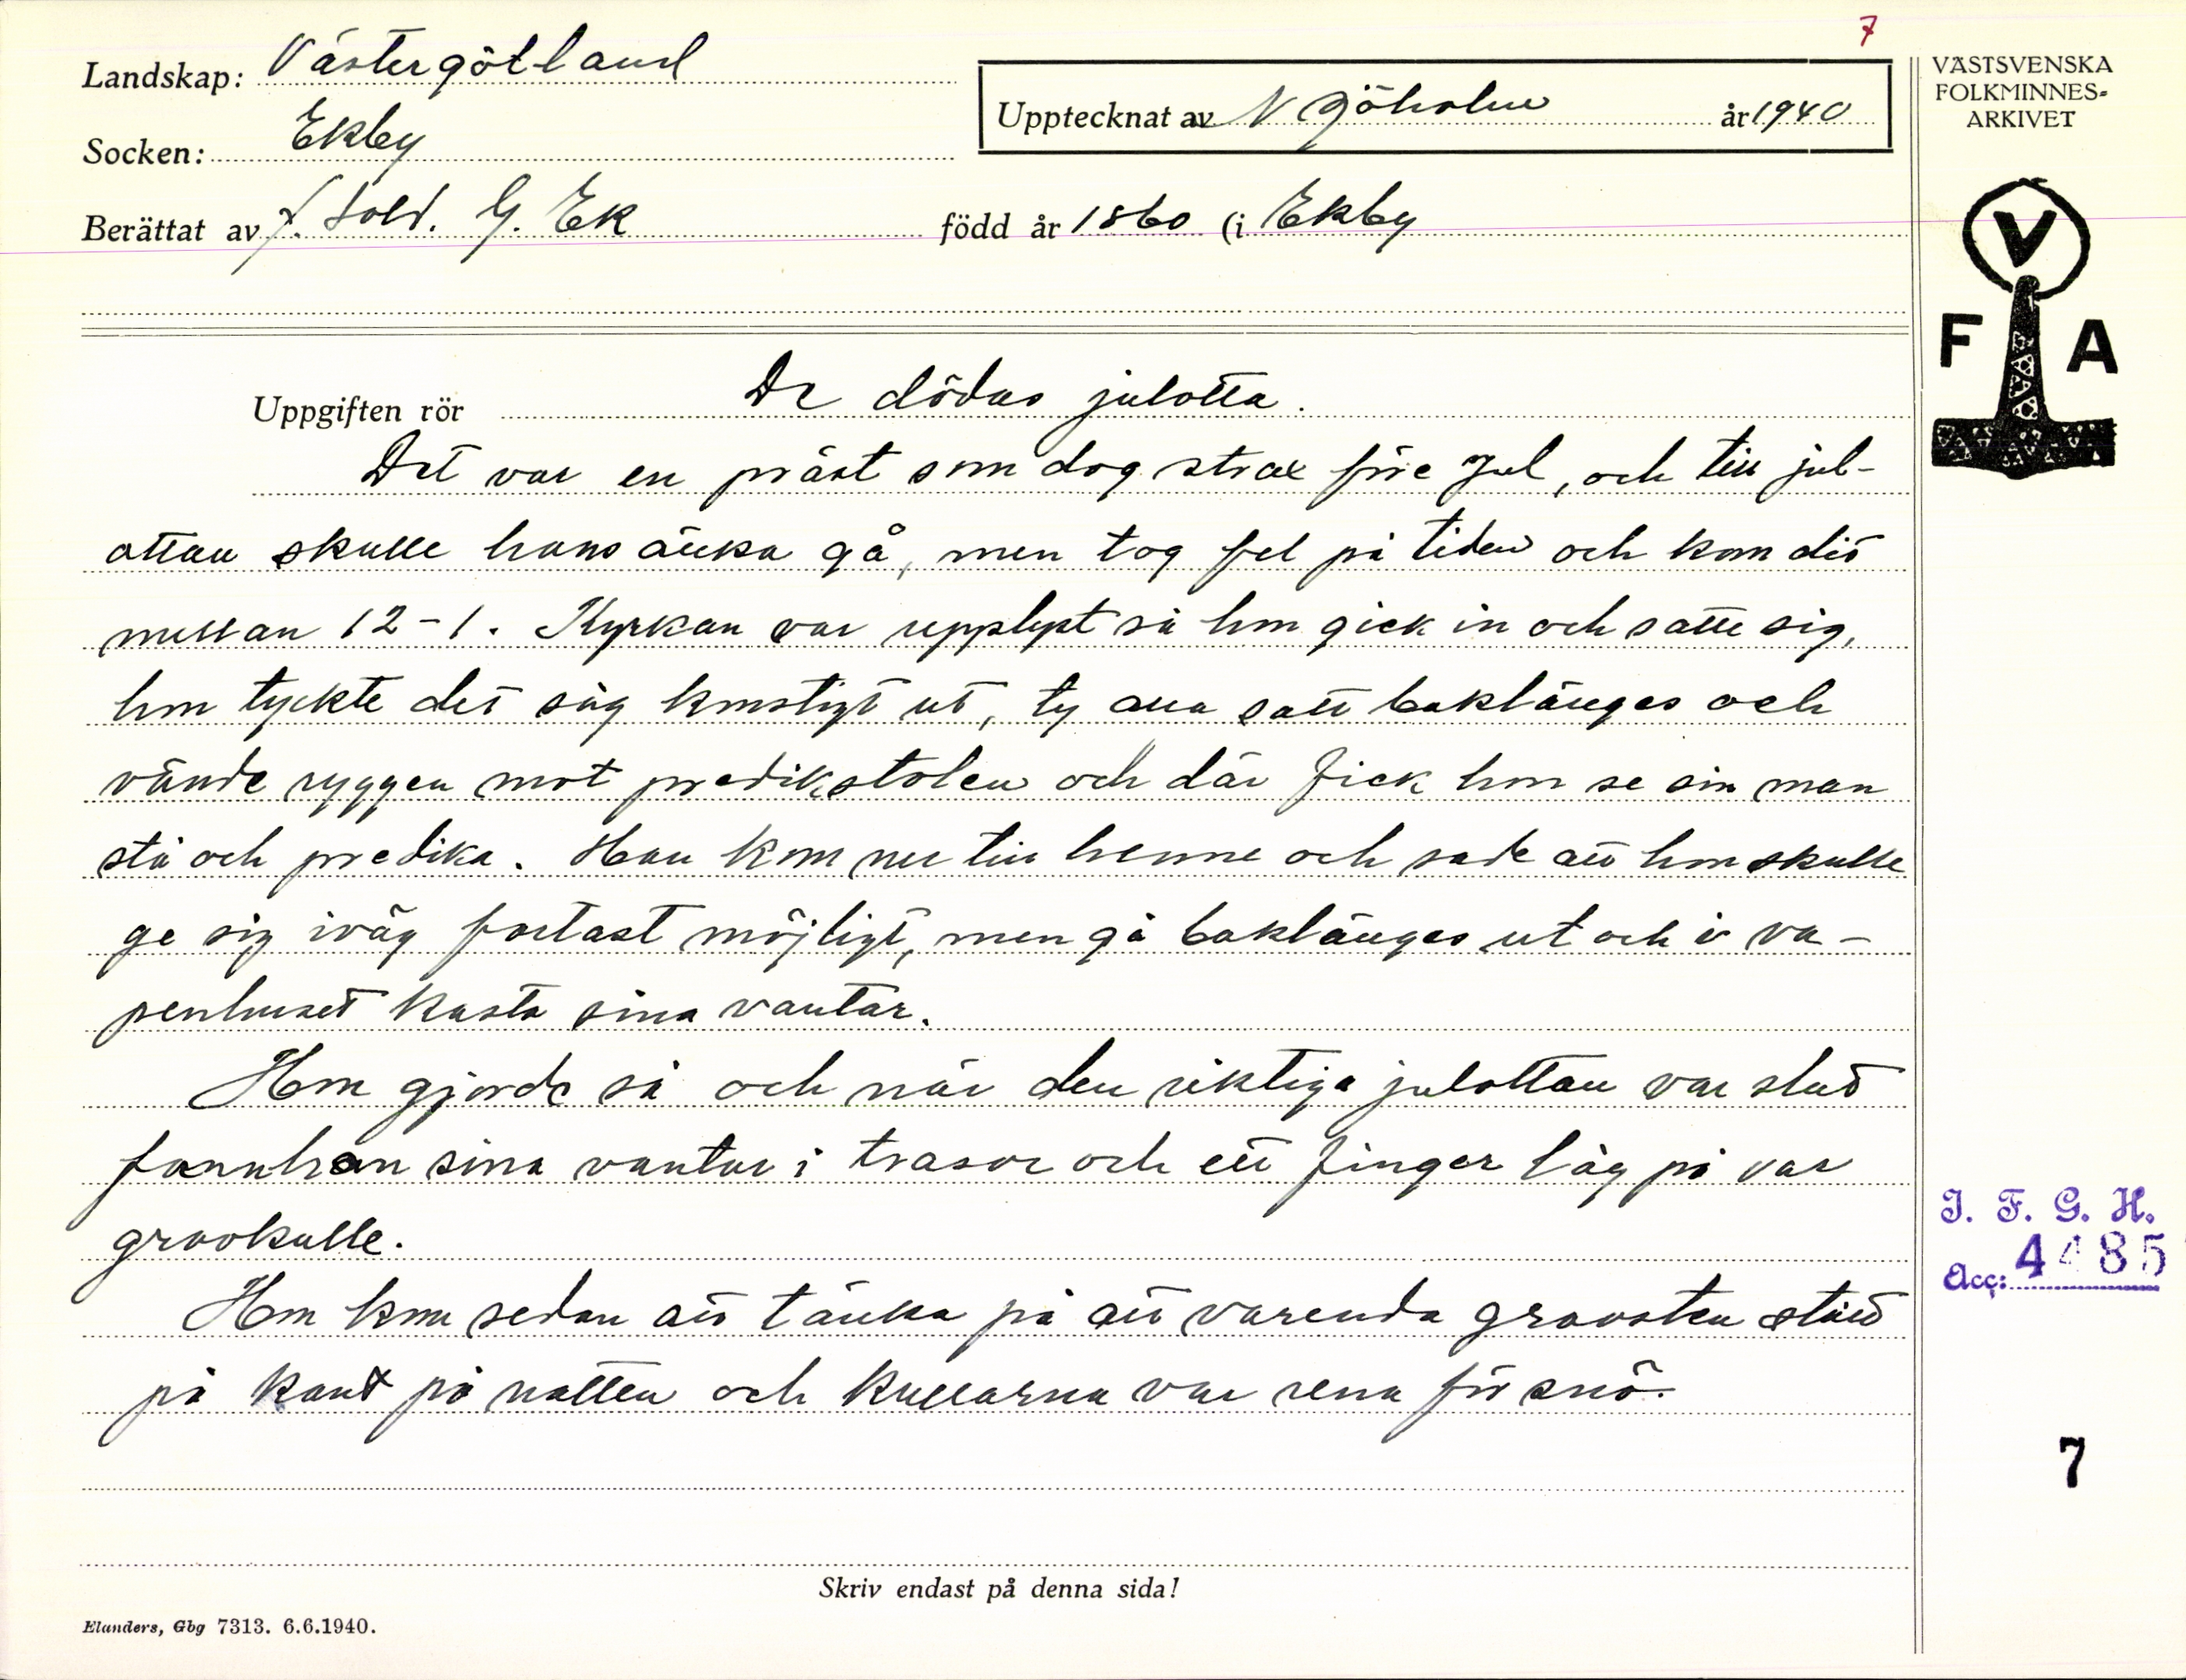 7
Landskap: Västergötland
Upptecknat av N Göholm år 1940
Socken: Ekby
Berättat av f. sold. G. Ek född år 1860 (i Ekby
VÄSTSVENSKA
FOLKMINNES-
ARKIVET
V
F A
Uppgiften rör De dödas julotta.
Det var en präst som dog strax före Jul, och till jul-
ottan skulle hans änka gå, men tog fel på tiden och kom dit
mellan 12-1. Kyrkan var upplyst så hon gick in och satte sig,
hon tyckte det såg konstigt ut, ty alla satt baklänges och
vände ryggen mot predikstolen och där fick hon se sin man
stå och predika. Han kom nu till henne och sade att hon skulle
ge sig iväg fortast möjligt, men gå baklänges ut och i va-
penhuset kasta sina vantar.
Hon gjorde så och när den riktiga julottan var slut
fann hon sina vantar i trasor och ett finger låg på var
gravkulle.
Hon kom sedan att tänka på att varenda gravsten stod
på kant på natten och kullarna var rena för snö.
I. F. G. H.
Acc: 4485
7
Skriv endast på denna sida!
Elanders, Gbg 7313. 6.6.1940.